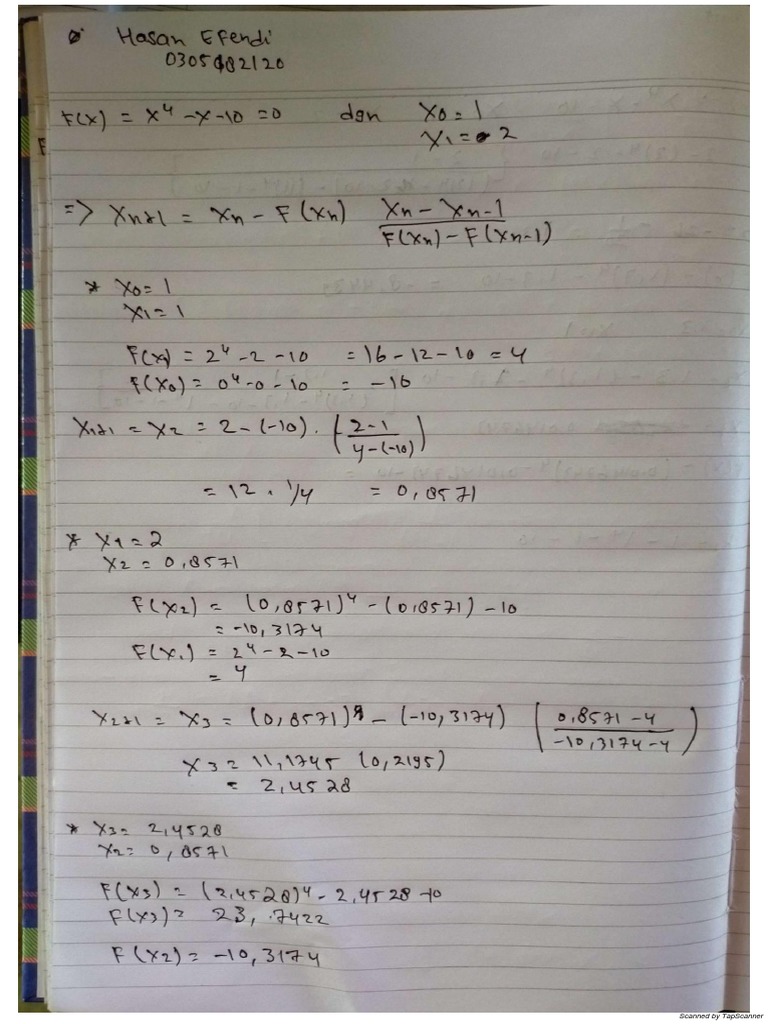 Hasan Efendi
0305182120
F(x) = x⁴ - x - 10 = 0 dan x0 = 1
x1 = 2
=> xn+1 = xn - F(xn) xn - xn-1 / F(xn) - F(xn-1)
* x0 = 1
x1 = 1
F(x1) = 2⁴ - 2 - 10 = 16 - 12 - 10 = 4
F(x0) = 0⁴ - 0 - 10 = -10
xn+1 = x2 = 2 - (-10) . (2-1 / 4-(-10))
= 12 . 1/4 = 0,8571
* x1 = 2
x2 = 0,8571
F(x2) = (0,8571)⁴ - (0,8571) - 10
= -10,3174
F(x1) = 2⁴ - 2 - 10
= 4
x2+1 = x3 = (0,8571) - (-10,3174) (0,8571 - 4 / -10,3174 - 4)
x3 = 11,1745 (0,2195)
= 2,4528
* x3 = 2,4528
x2 = 0,8571
F(x3) = (2,4528)⁴ - 2,4528 - 10
F(x3) = 23,7422
F(x2) = -10,3174
Scanned by TapScanner